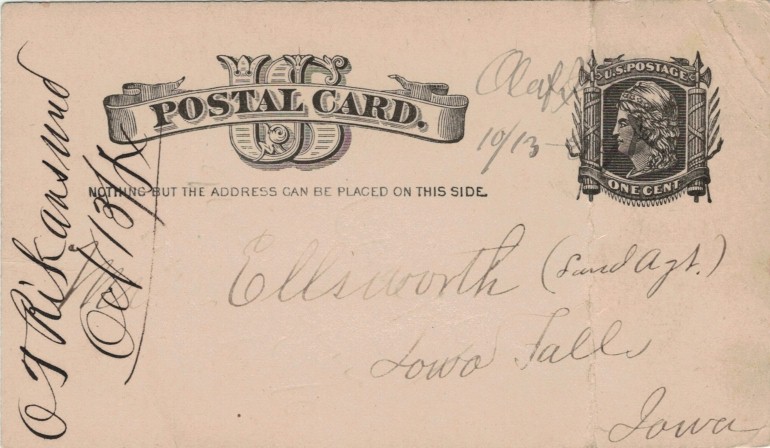 US
POSTAL CARD.
NOTHING BUT THE ADDRESS CAN BE PLACED ON THIS SIDE.
U.S. POSTAGE
ONE CENT
10/13
Ellsworth (Land Agt.)
Iowa Falls
Iowa
Oct 13/